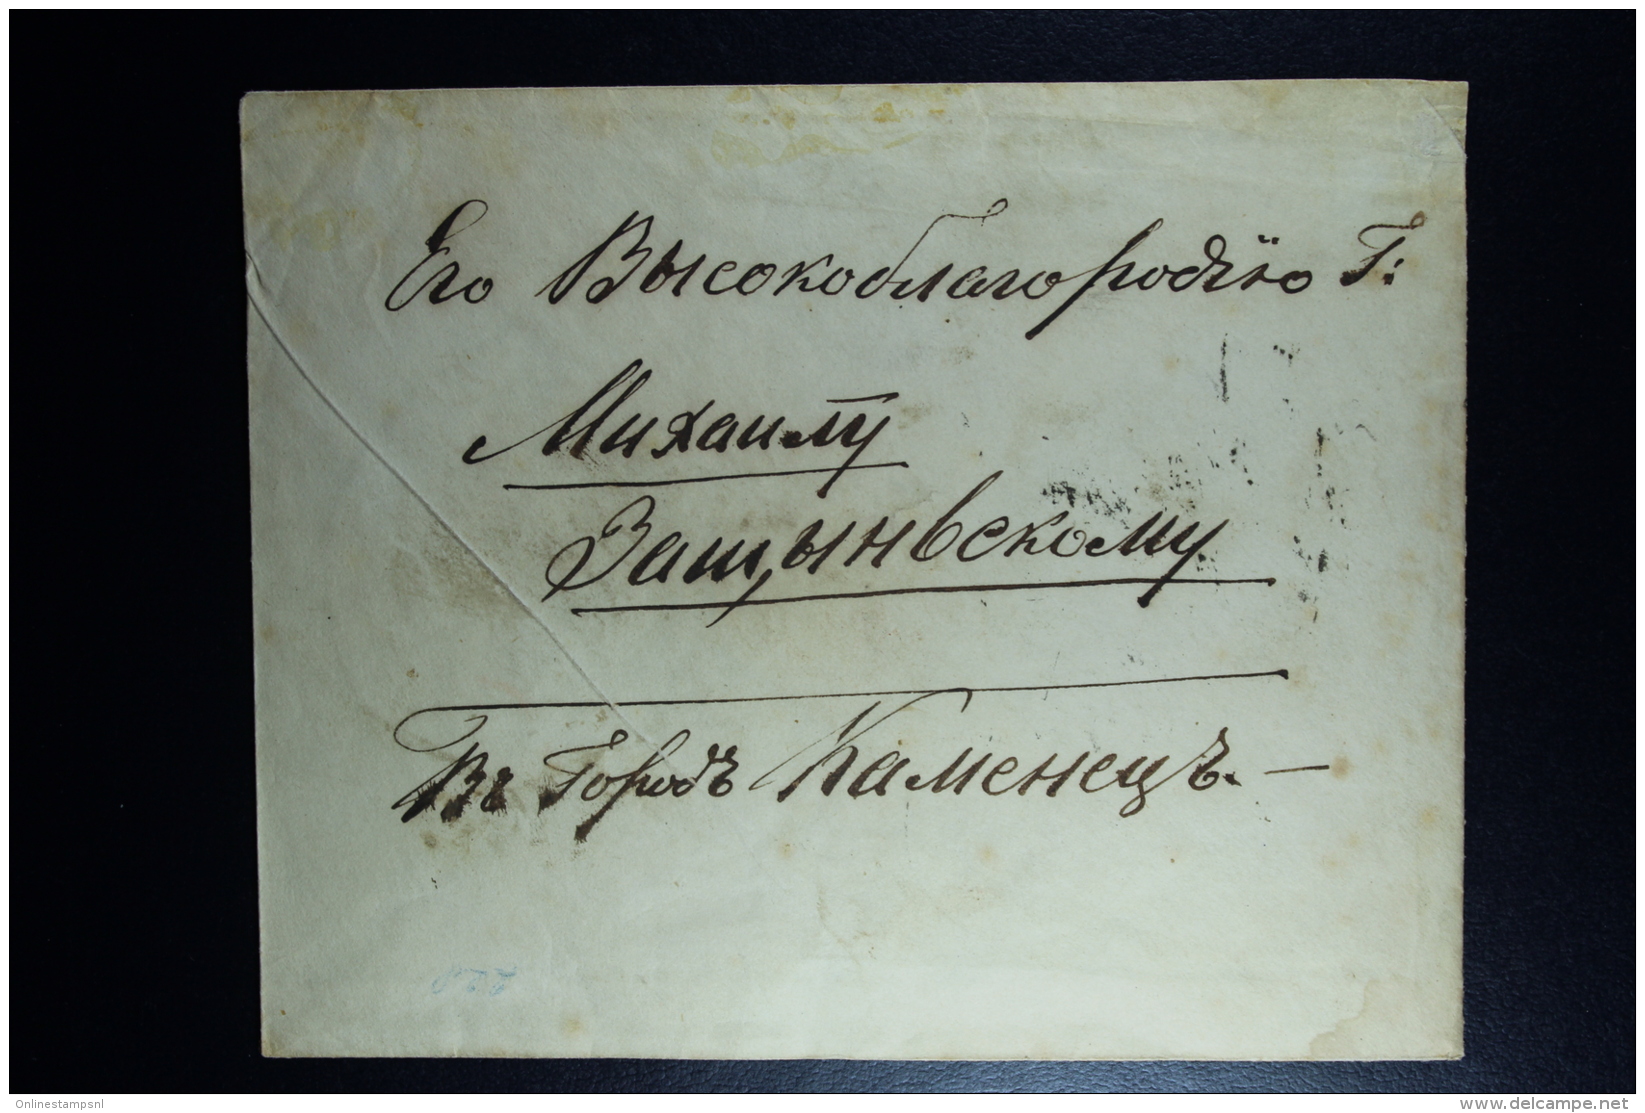 Его Высокоблагородїю Г:
Михаилу
Защынвскому
Въ Городъ Каменецъ. —
Onlinestampsnl
www.delcampe.net